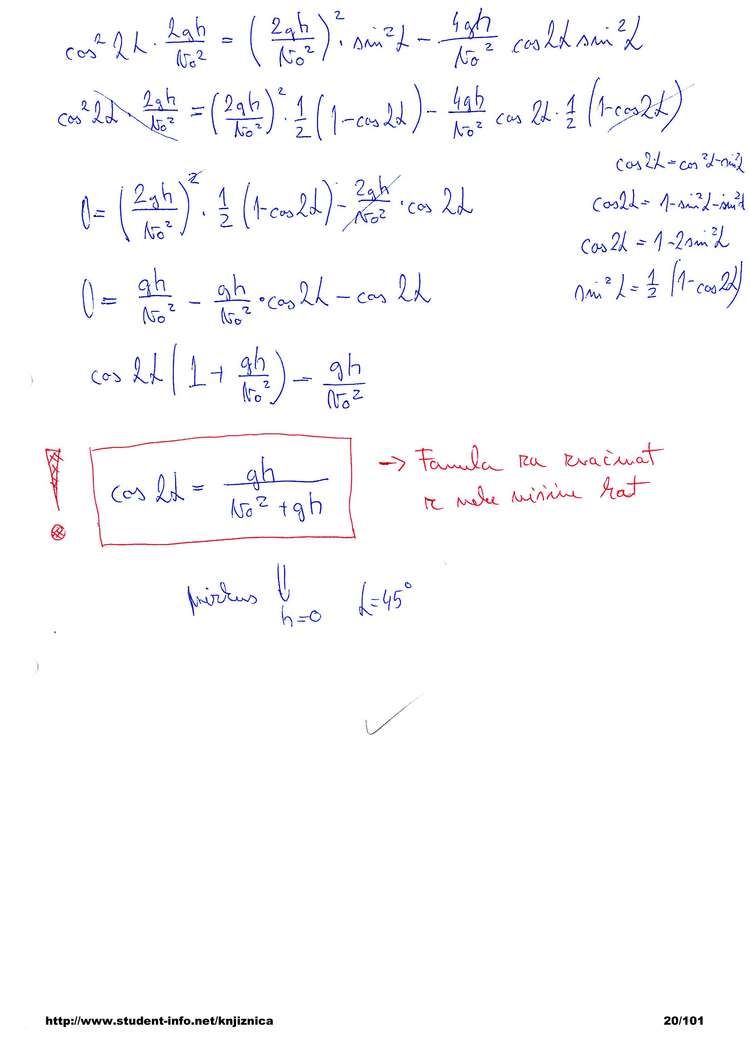 cos² 2α · 2gh/v₀² = (2gh/v₀²)² · sin²α − 4gh/v₀² cos2α sin²α
cos² 2α · 2gh/v₀² = (2gh/v₀²)² · 1/2 (1−cos2α) − 4gh/v₀² cos 2α · 1/2 (1−cos2α)
cos2α = cos²α−sin²α
0 = (2gh/v₀²)² · 1/2 (1−cos2α) − 2gh/v₀² · cos 2α
cos2α = 1−sin²α−sin²α
cos2α = 1−2sin²α
sin²α = 1/2 (1−cos2α)
0 = gh/v₀² − gh/v₀² · cos2α − cos 2α
cos 2α (1 + gh/v₀²) = gh/v₀²
!
cos 2α = gh/(v₀² + gh)
→ Formula za
z neke visine
⇓
h=0 α=45°
✓
http://www.student-info.net/knjiznica
20/101